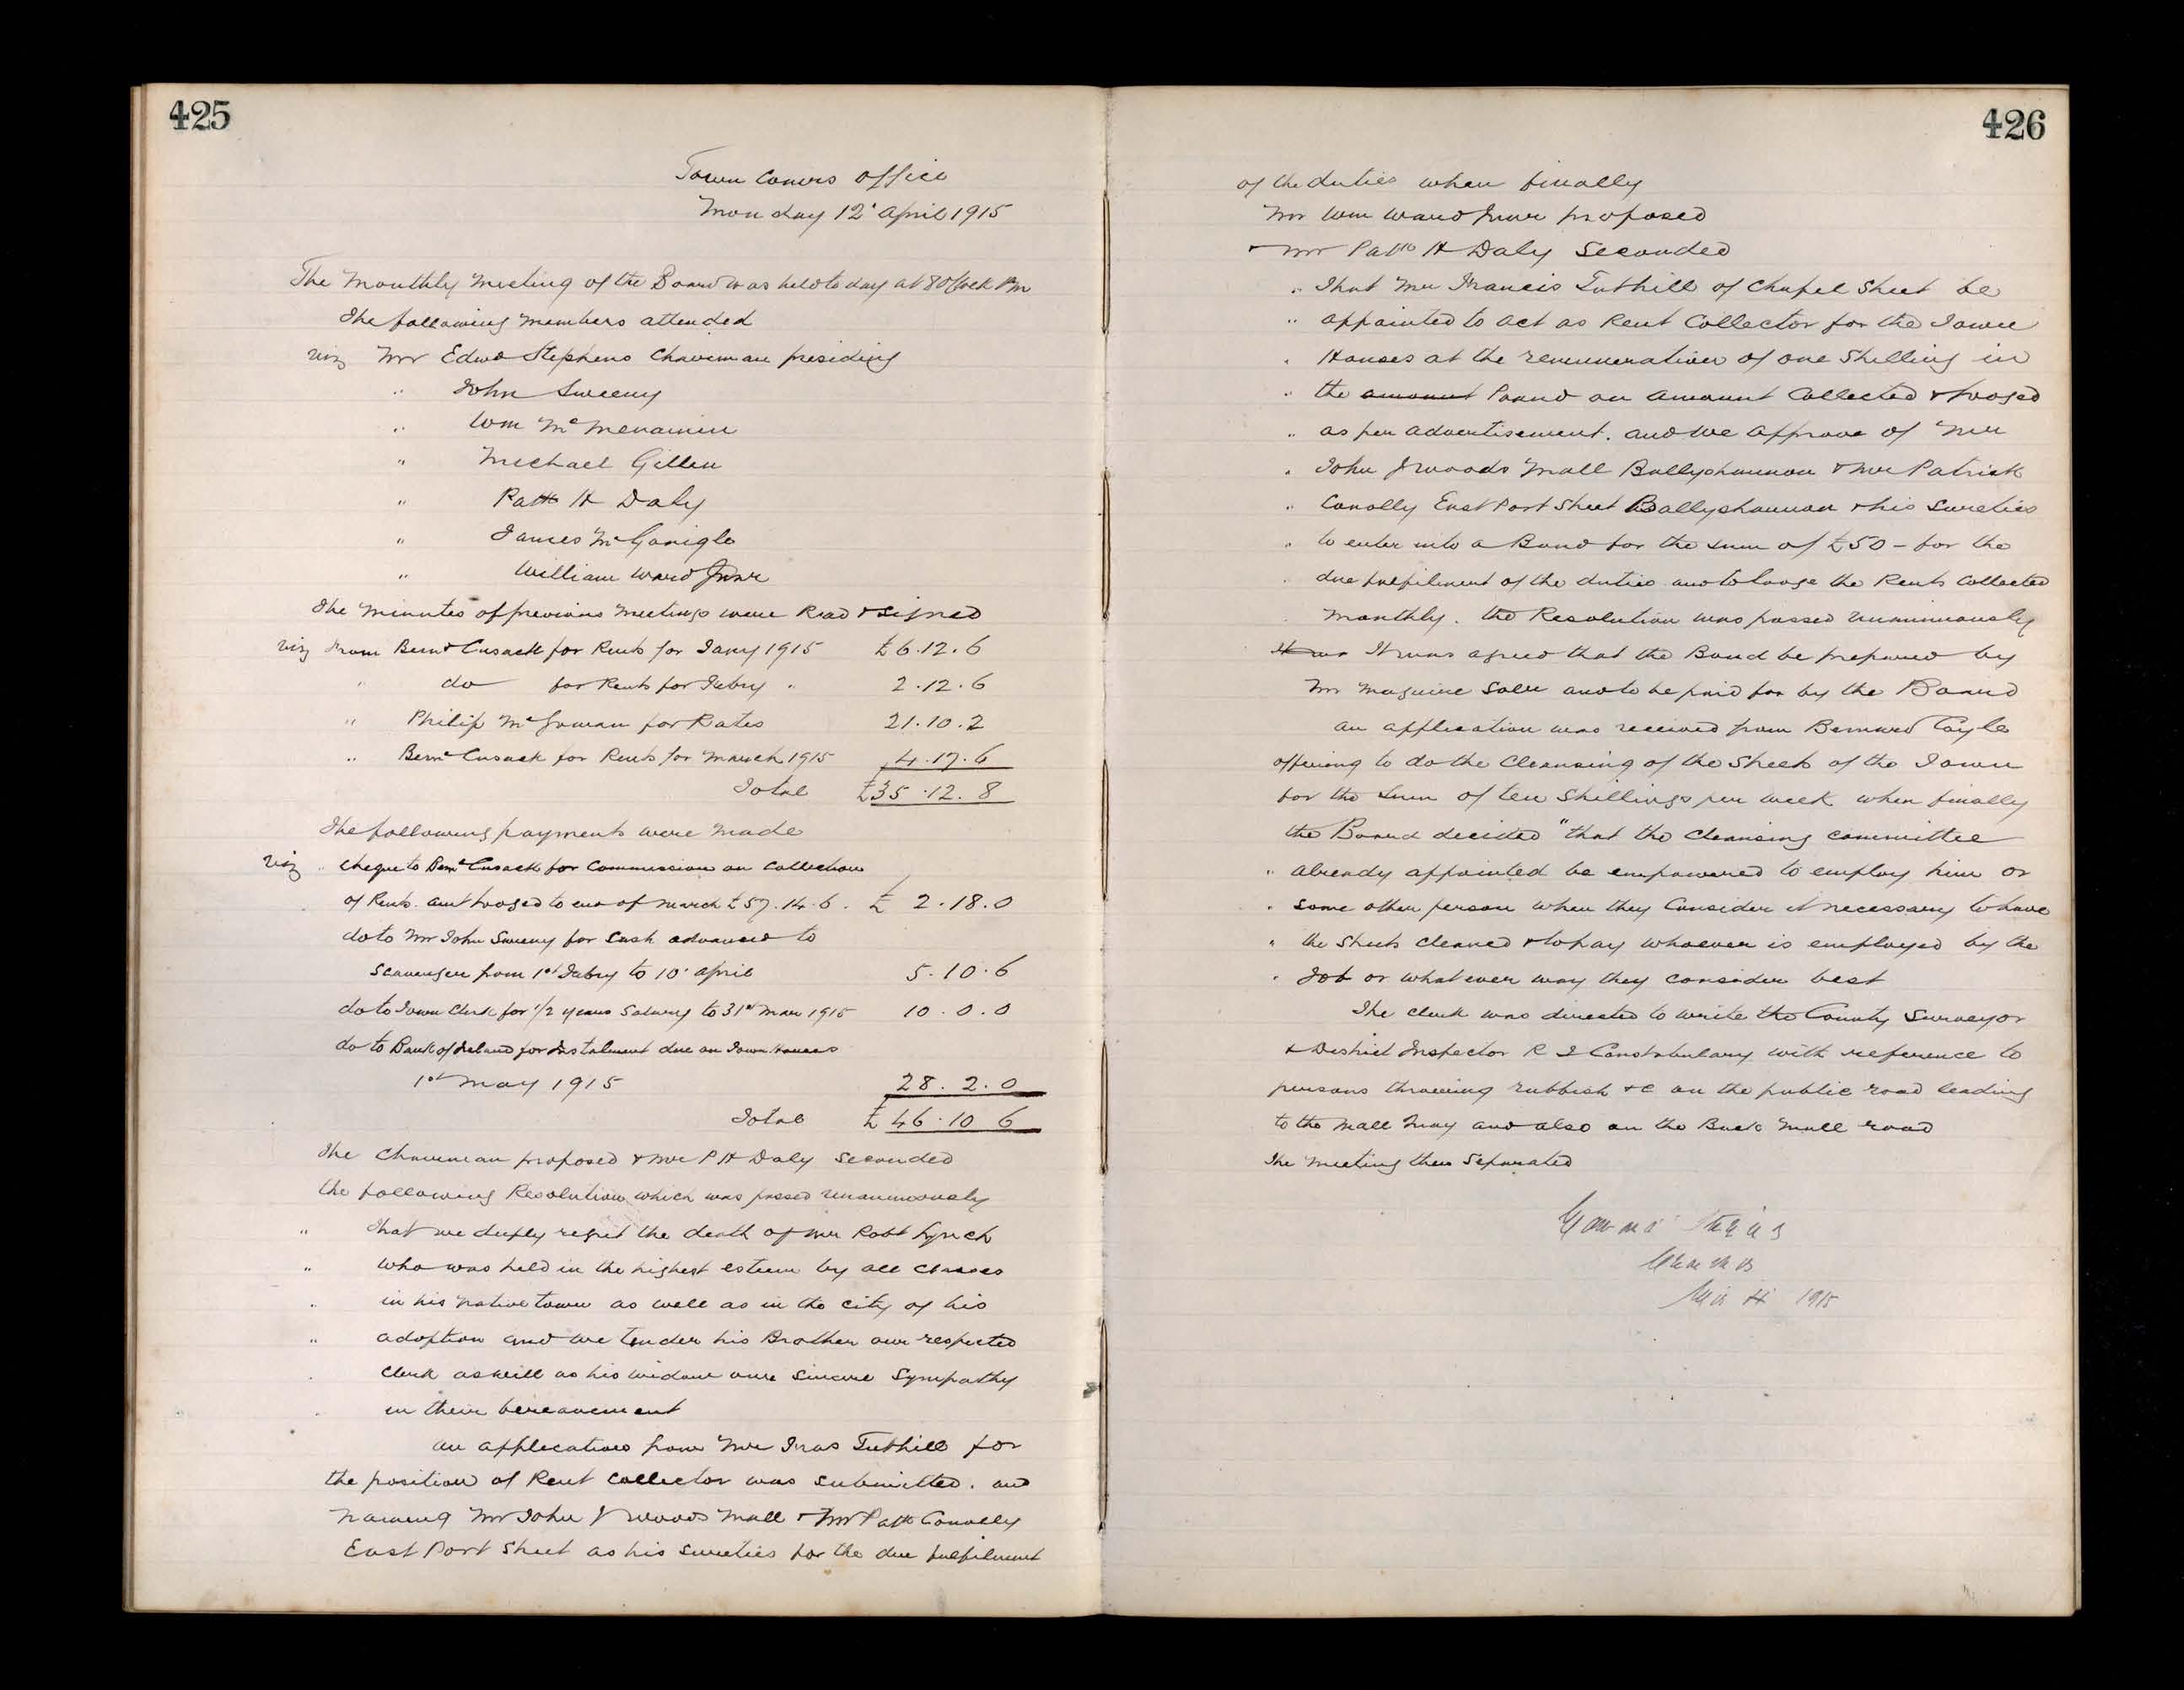 425
Town Comrs Office
Monday 12' April 1915
The Monthly Meeting of the Board was held to day at 8 O'Clock Pm
The following Members attended
viz Mr Edwd Stephens Chairman presiding
" John Sweeny
" Wm McMenamin
" Michael Gillen
" Patk H Daly
" James McGonigle
" William Ward Junr
The Minutes of previous Meetings were Read & signed
viz From Bernd Cusack for Rents for Jany 1915 £6.12.6
" do for Rents for Febry " 2.12.6
" Philip McGowan for Rates 21.10.2
" Bernd Cusack for Rents for March 1915 4.17.6
Total £35.12.8
The following payments were Made
viz " Cheque to Bernd Cusack for Commission on Collection
of Rents amt lodged to end of March £57.14.6. £ 2.18.0
do to Mr John Sweeny for Cash advanced to
Scavenger from 1st Febry to 10' April 5.10.6
do to Town Clerk for 1/2 years Salary to 31st Mar 1915 10.0.0
do to Bank of Ireland for Instalment due on Town Houses
1st May 1915 28.2.0
Total £46.10 6
The Chairman proposed & Mr P H Daly Seconded
the following Resolution which was passed unanimously
" That we deeply regret the death of Mr Robt Lynch
" Who was held in the highest esteem by all Classes
" in his Native town as well as in the City of his
" adoption and we tender his Brother our respected
" Clerk as well as his widow our Sincere Sympathy
" in their bereavement
An application from Mr Fras Tuthill for
the position of Rent Collector was submitted. and
Naming Mr John J Woods Mall & Mr Patk Conolly
East Port Street as his Sureties for the due fulfilment
426
of the duties when finally
Mr Wm Ward Junr proposed
& Mr Patk H Daly Seconded
" That Mr Francis Tuthill of Chapel Street be
" appointed to act as Rent Collector for the Town
" Houses at the remuneration of one Shilling in
" the amount Pound on Amount Collected & lodged
" as per advertisement. and we Approve of Mr
" John J Woods Mall Ballyshannon & Mr Patrick
" Conolly East Port Street Ballyshannon & his Sureties
" to enter into a Bond for the sum of £50 - for the
" due fulfilment of the duties and to lodge the Rents Collected
" Monthly. the Resolution was passed unanimously
It was It was agreed that the Bond be prepared by
Mr Maguire Solr and to be paid for by the Board
An application was received from Bernard Coyle
offering to do the Cleansing of the Streets of the Town
for the Sum of ten Shillings per week when finally
the Board decided "that the Cleansing Committee
" already appointed be empowered to employ him or
" some other person when they Consider it necessary to have
" the Streets Cleaned & to pay whoever is employed by the
" Job or whatever way they consider best
The Clerk was directed to write the County Surveyor
& District Inspector R I Constabulary with reference to
persons throwing rubbish &c on the public road leading
to the Mall Quay and also on the Back Mall road
The Meeting then Separated
1915